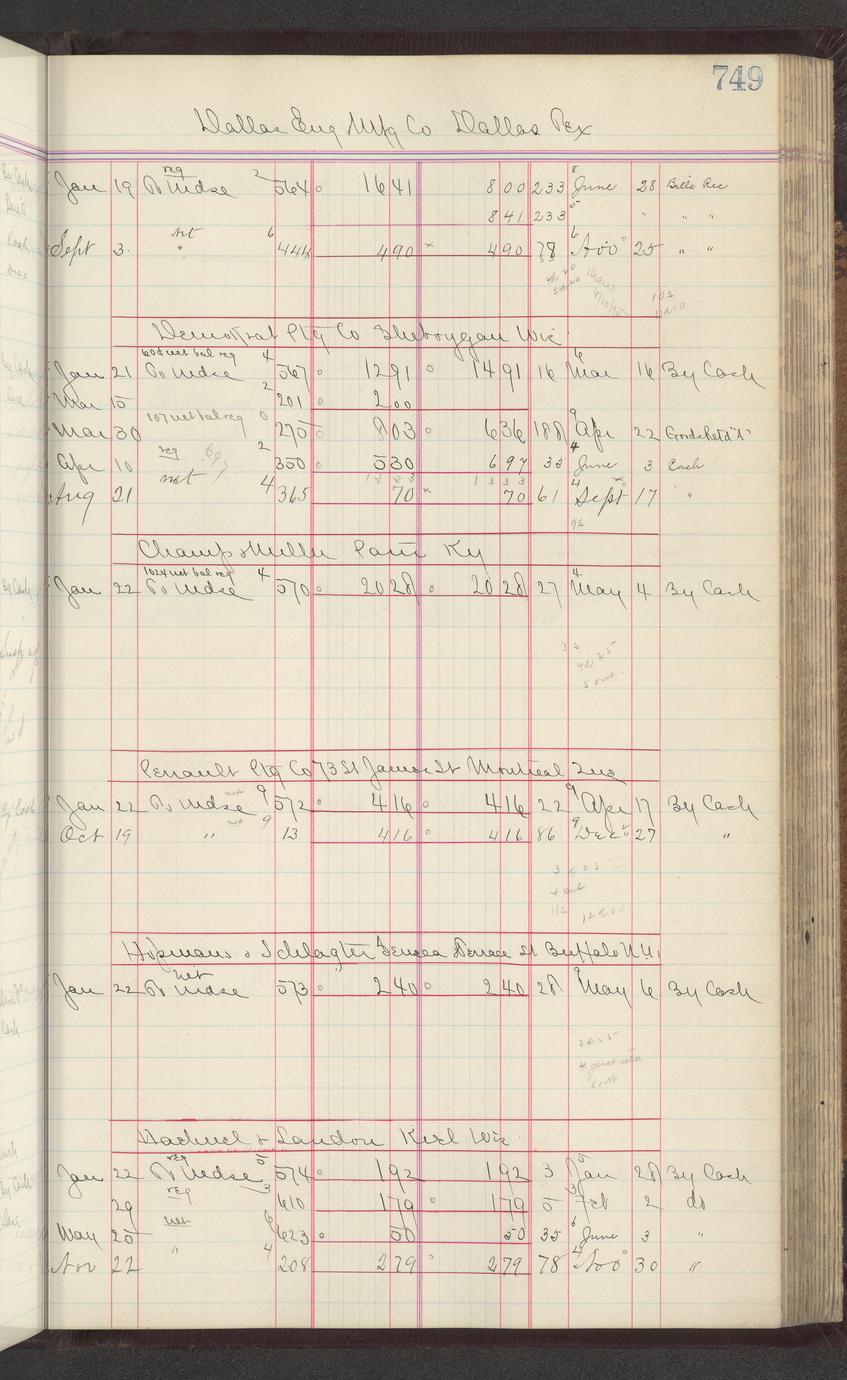 749
Dallas Eng Mfg Co Dallas Tex
Jan 19 To Mdse reg 2 564 1641 800 233 8 June 28 Bills Rec
841 233 5 " " "
Sept 3 " net 6 444 490 490 78 6 Nov 25 " "
Demokrat Ptg Co Sheboygan Wis
Jan 21 To Mdse 608 net bal reg 4 567 1291 1491 16 6 Mar 16 By Cash
Mar 15 2 201 200
Mar 30 107 net bal reg 0 275 803 636 188 9 Apr 22 Goods Retd "A"
Apr 10 reg 2 350 530 697 35 4 June 3 Cash
1333 1333
Aug 21 net 4 365 70 70 61 4 Sept 17 "
Champ & Miller Paris Ky
Jan 22 To Mdse 1024 net bal reg 4 570 2028 2028 27 4 May 4 By Cash
Perrault Ptg Co 73 St James St Montreal Que
Jan 22 To Mdse net 9 572 416 416 22 9 Apr 17 By Cash
Oct 19 " net 9 13 416 416 86 9 Dec 27 "
Hopmans & Schlagter Seneca Terrace St Buffalo N.Y.
Jan 22 To Mdse net 573 240 240 28 9 May 6 By Cash
2d 25
& Landon Kiel Wis
Jan 22 To Mdse reg 5 574 192 192 3 5 Jan 28 By Cash
29 reg 3 610 179 179 5 3 Feb 2 do
May 25 net 6 623 50 50 35 6 June 3 "
Nov 22 " 4 208 279 279 78 4 Nov 30 "